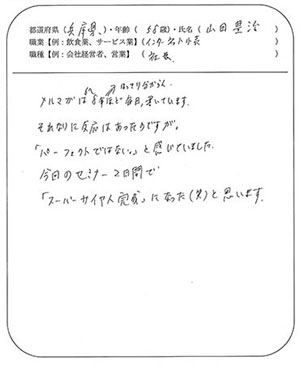 都道府県(兵庫県)・年齢( 58歳)・氏名( 山田豊治 )
職業【例：飲食業、サービス業】(インターネット小売 )
職種【例：会社経営者、営業】( 社長 )
はっきり分からん
メルマガは8年ほど毎日、書いています。
それなりに反応はあったのですが。
「パーフェクトではない。」と感じていました。
今回のセミナー2日間で
「スーパーサイヤ人完成」になった(笑)と思います。